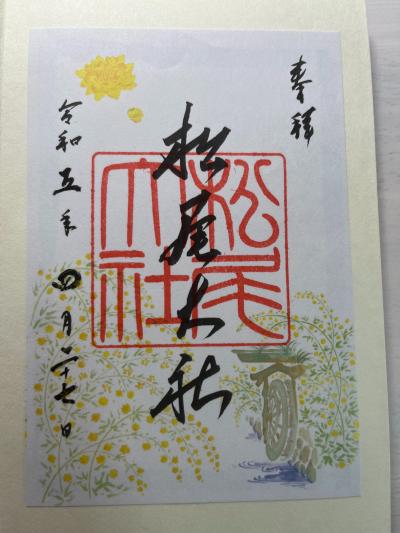 奉拝
松尾大社
松尾大社
令和五年四月二十七日